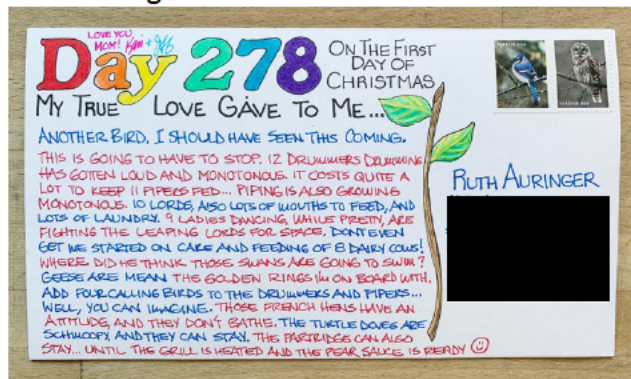 LOVE YOU,
MOM!
Day 278
ON THE FIRST
DAY OF
CHRISTMAS
MY TRUE LOVE GAVE TO ME...
ANOTHER BIRD. I SHOULD HAVE SEEN THIS COMING.
THIS IS GOING TO HAVE TO STOP. 12 DRUMMERS DRUMMING
HAS GOTTEN LOUD AND MONOTONOUS. IT COSTS QUITE A
LOT TO KEEP 11 PIPERS FED... PIPING IS ALSO GROWING
MONOTONOUS. 10 LORDS, ALSO LOTS OF MOUTHS TO FEED, AND
LOTS OF LAUNDRY. 9 LADIES DANCING, WHILE PRETTY, ARE
FIGHTING THE LEAPING LORDS FOR SPACE. DONT EVEN
GET ME STARTED ON CARE AND FEEDING OF 8 DAIRY COWS!
WHERE DID HE THINK THOSE SWANS ARE GOING TO SWIM?
GEESE ARE MEAN THE GOLDEN RINGS I'M ON BOARD WITH.
ADD FOUR CALLING BIRDS TO THE DRUMMERS AND PIPERS...
WELL, YOU CAN IMAGINE. THOSE FRENCH HENS HAVE AN
ATTITUDE, AND THEY DON'T BATHE. THE TURTLE DOVES ARE
SCHMOOPY, AND THEY CAN STAY. THE PARTRIDGE CAN ALSO
STAY... UNTIL THE GRILL IS HEATED AND THE PEAR SAUCE IS READY
RUTH AURINGER